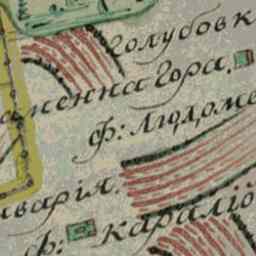 голубовк
аменна гора.
ф: Людоме
иварія.
ф: караліо